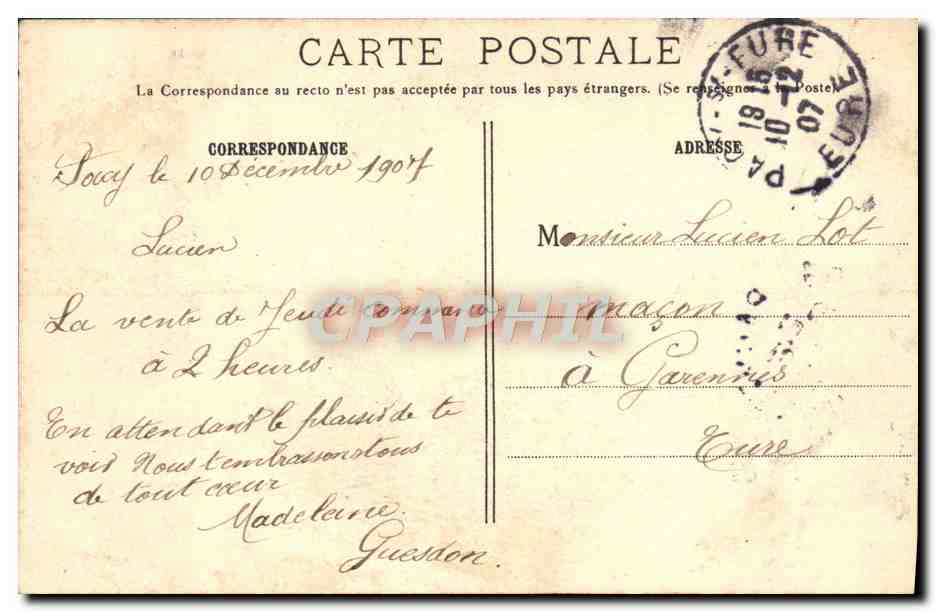 CARTE POSTALE
La Correspondance au recto n'est pas acceptée par tous les pays étrangers. (Se renseigner à la Poste)
CORRESPONDANCE
Pacy le 10 Décembre 1907
Lucien
La vente de Jeudi commence
à 2 heures.
En attendant le plaisir de te
voir Nous t'embrassons tous
de tout cœur
Madeleine
Guesdon.
ADRESSE
Monsieur Lucien Lot
maçon
à Garennes
Eure
PACY-SR-EURE
19 15
10 -12
07
EURE
CPAPHIL